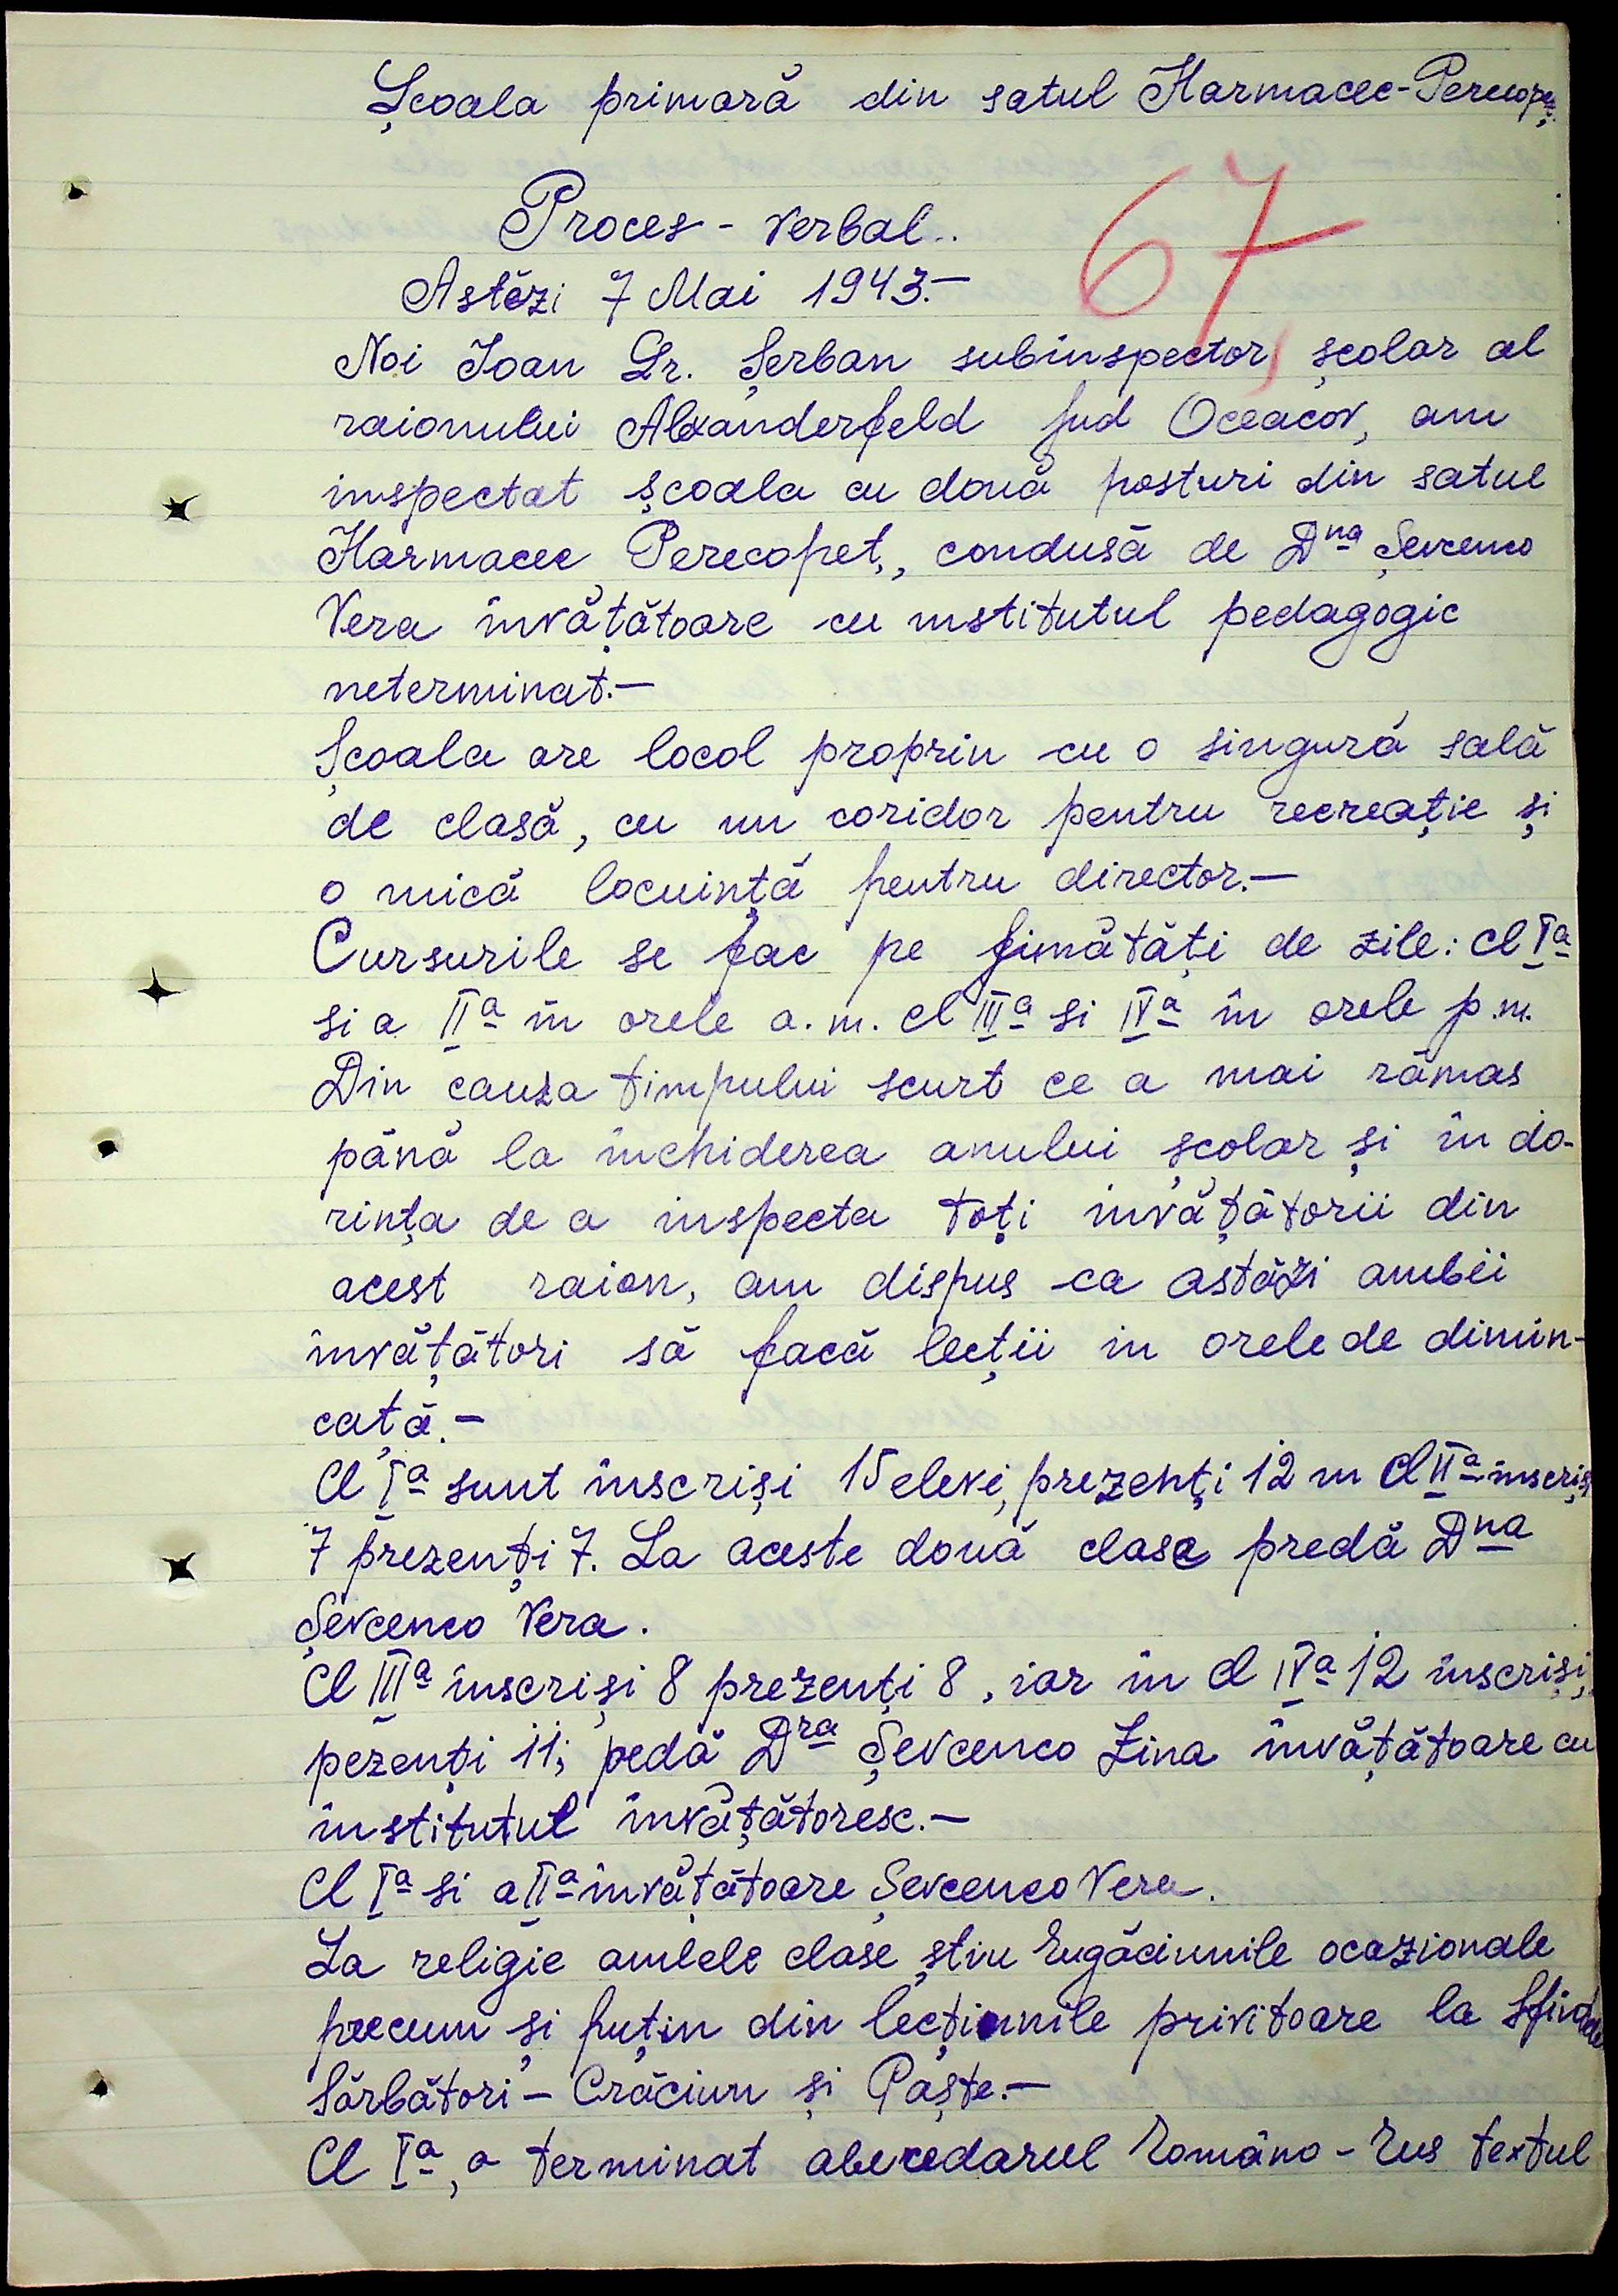 Școala primară din satul Harmacec-Perecopeț.
67
Proces - Verbal..
Astăzi 7 Mai 1943.—
Noi Ioan Gr. Șerban subinspector școlar al
raionului Alexanderfeld jud Oceacov, am
inspectat școala cu două posturi din satul
Harmacec Perecopeț, condusă de Dna Șevcenco
Vera învățătoare cu institutul pedagogic
neterminat.—
Școala are locol propriu cu o singură sală
de clasă, cu un coridor pentru recreație și
o mică locuință pentru director.—
Cursurile se fac pe jimătăți de zile: cl Ia
si a IIa în orele a.m. cl IIIa si IVa în orele p.m.
Din cauza timpului scurt ce a mai rămas
până la închiderea anului școlar și în do-
rința de a inspecta toți învățătorii din
acest raion, am dispus ca astăzi ambii
învățători să facă lecții in orele de dimin-
eață.—
Cl Ia sunt înscriși 15 elevi, prezenți 12 in Cl IIa înscriși
7 prezenți 7. La aceste două clase predă Dna
Șevcenco Vera.
Cl IIIa înscriși 8 prezenți 8, iar în cl IVa 12 înscriși,
pezenți 11; pedă Dra Șevcenco Zina învățătoare cu
institutul învățătoresc.—
Cl Ia si a IIa învățătoare Șevcenco Vera.
La religie ambele clase știu rugăciunile ocazionale
precum și puțin din lecțiunile privitoare la
Sărbători — Crăciun și Paște.—
Cl Ia, a terminat abecedarul româno - rus textul